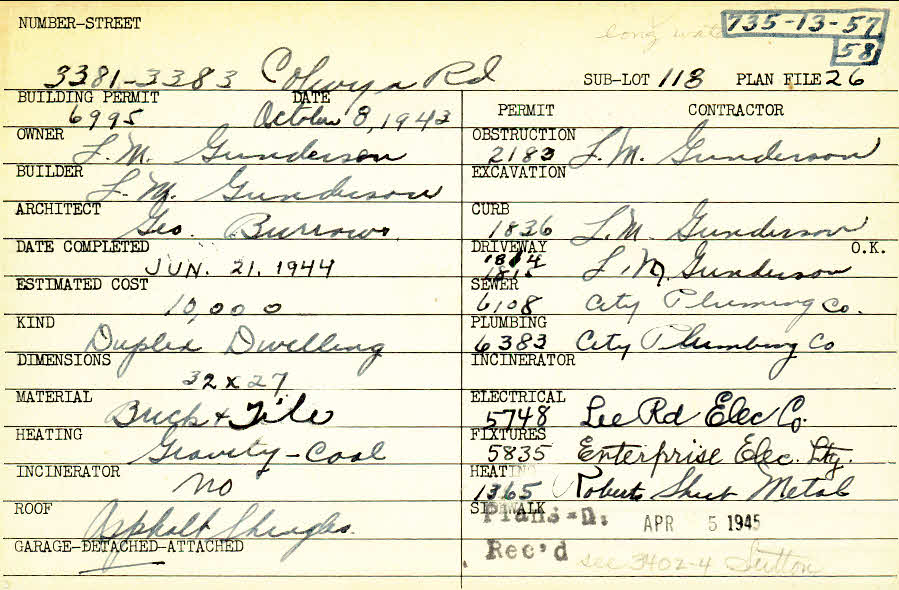 NUMBER-STREET
long wat
735-13-57
58
3381-3383 Colwyn Rd SUB-LOT 118 PLAN FILE 26
BUILDING PERMIT DATE
6995 October 8, 1943
OWNER
L. M. Gunderson
BUILDER
L. M. Gunderson
ARCHITECT
Geo. Burrows.
DATE COMPLETED
JUN. 21, 1944
ESTIMATED COST
10,000
KIND
Duplex Dwelling
DIMENSIONS
32 x 27
MATERIAL
Brick + Tile
HEATING
Gravity - Coal
INCINERATOR
no
ROOF
Asphalt Shingles.
GARAGE-DETACHED-ATTACHED
PERMIT CONTRACTOR
OBSTRUCTION
2183 L. M. Gunderson
EXCAVATION
CURB
1836 L. M. Gunderson
DRIVEWAY O.K.
1814
1815 L. M. Gunderson
SEWER
6108 City Pluming Co.
PLUMBING
6383 City Plumbing Co
INCINERATOR
ELECTRICAL
5748 Lee Rd Elec Co.
FIXTURES
5835 Enterprise Elec. Ltg.
HEATING
1365 Roberts Sheet Metal
SIDEWALK
Plans-D:
APR 5 1945
Rec'd
see 3402-4 Sutton